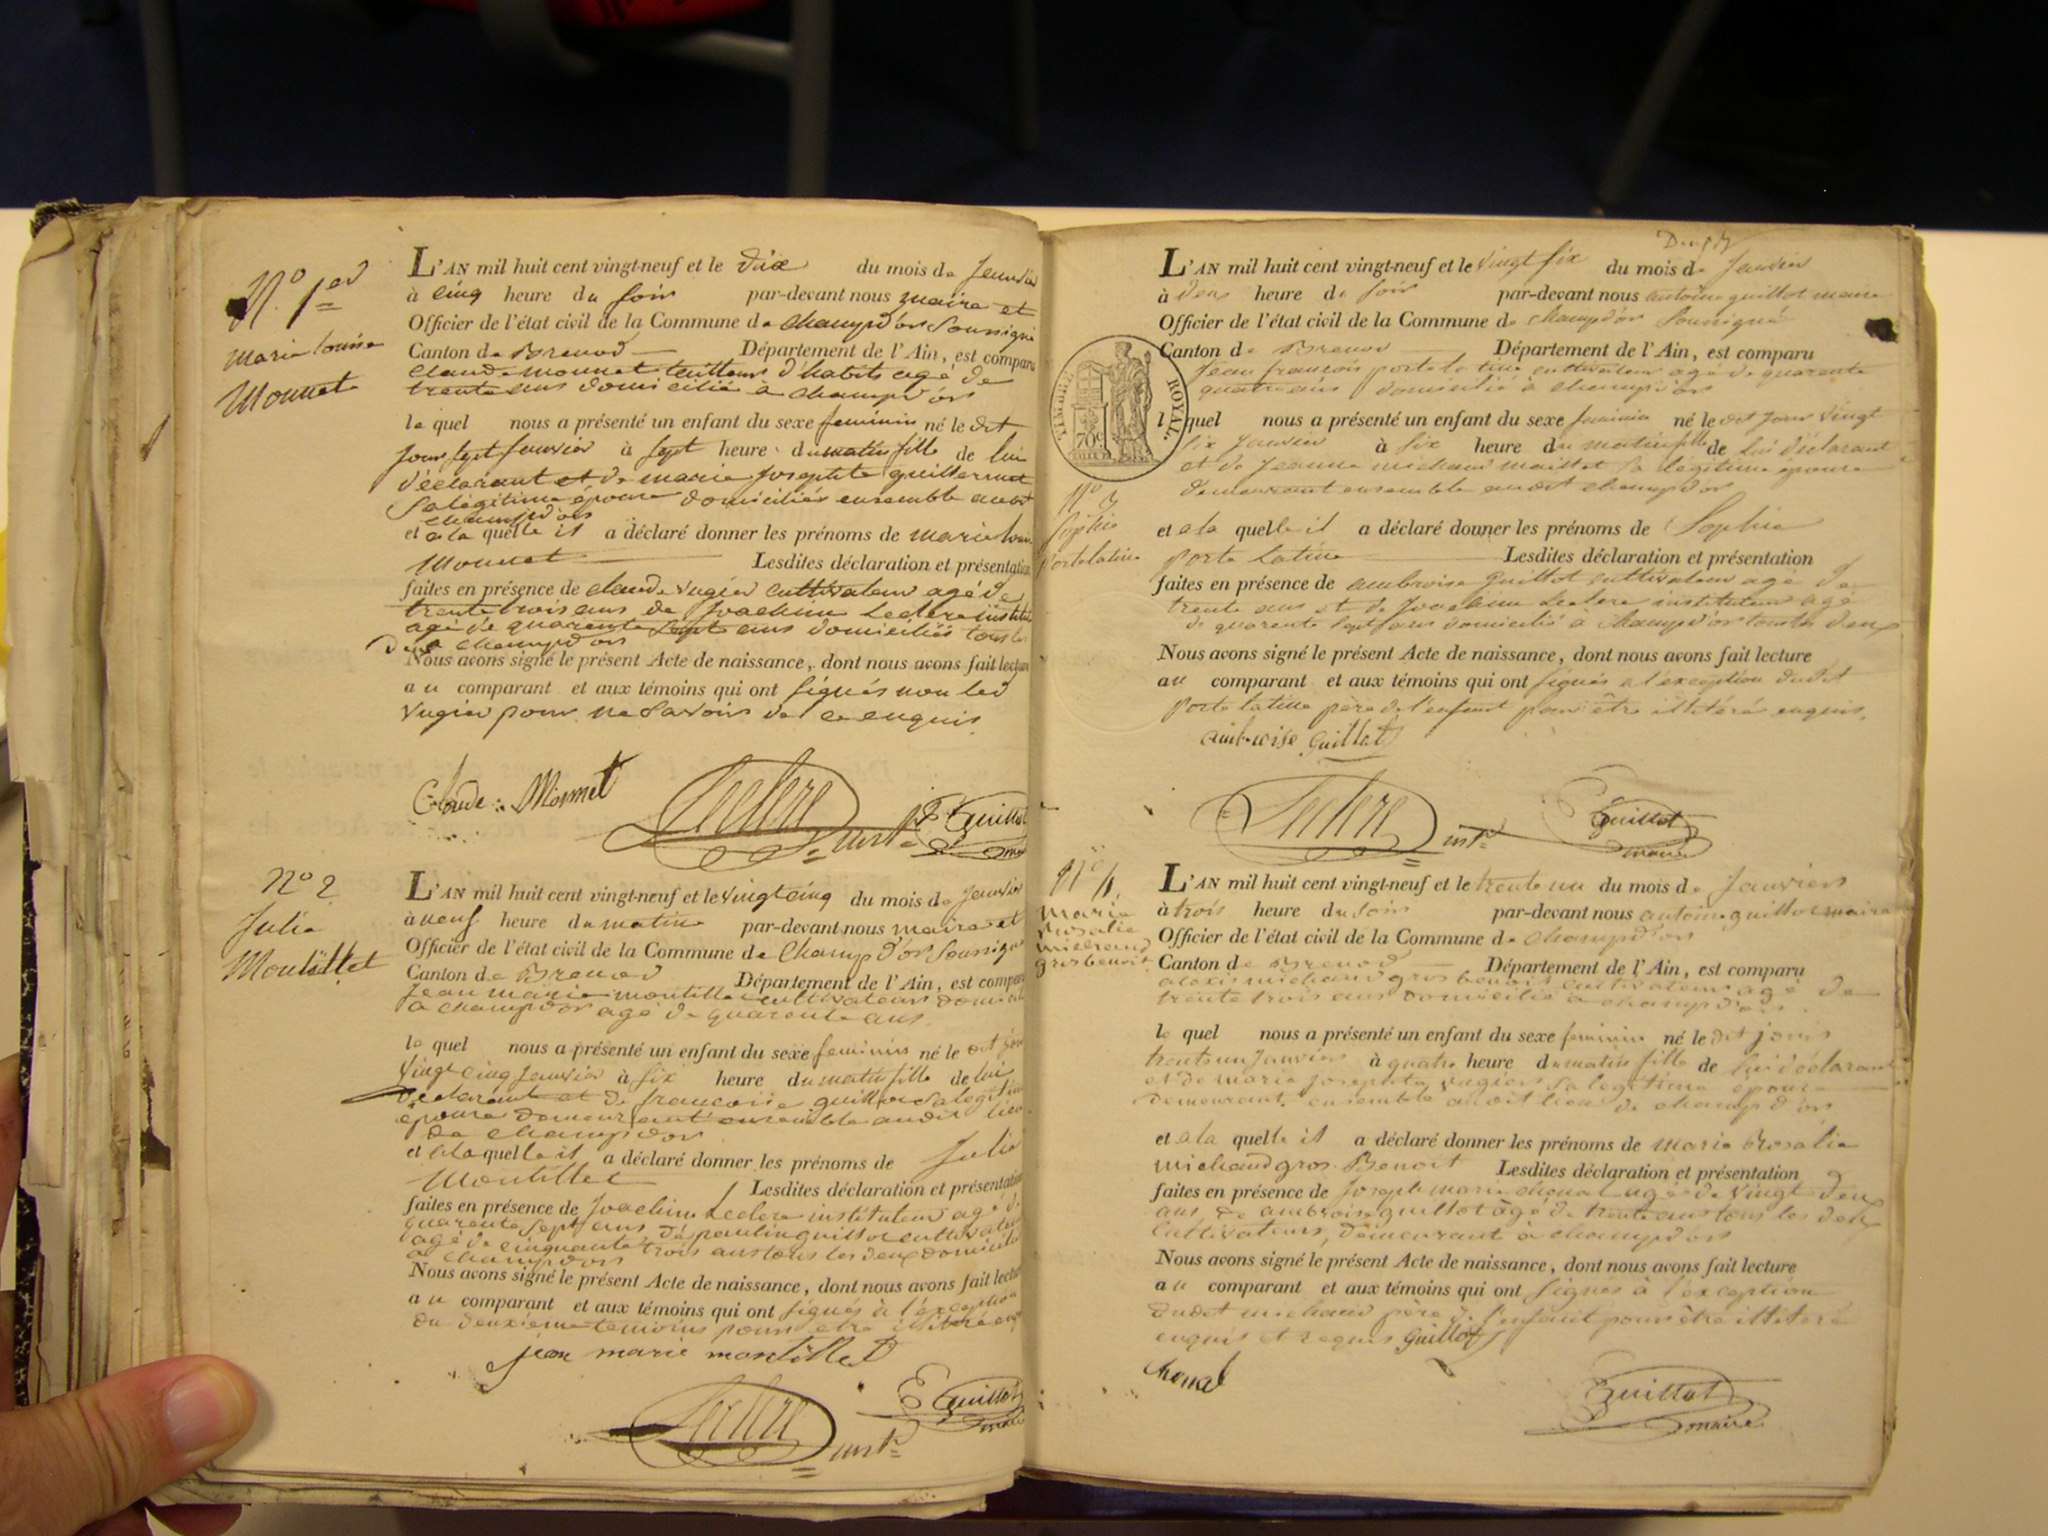 N.º 1er
Marie Louise
Monnet
L'AN mil huit cent vingt-neuf et le dix du mois de Janvier
à cinq heure du soir par-devant nous maire et
Officier de l'état civil de la Commune de champdor soussigné
Canton de Brenod Département de l'Ain, est comparu
claude monnet tailleur d'habits agé de
trente ans domicilié à champdor
le quel nous a présenté un enfant du sexe feminin né le dit
jour sept janvier à sept heure du matin fille de lui
déclarant et de marie josephte guillermet
sa légitime epouse domiciliés ensemble audit
champdor
et a la quelle il a déclaré donner les prénoms de marie louise
Monnet Lesdites déclaration et présentation
faites en présence de claude vugier cultivateur agé de
trente trois ans de Joachim Leclere institut
agé de quarante sept ans domiciliés tous les
deux a champdor
Nous avons signé le présent Acte de naissance, dont nous avons fait lecture
au comparant et aux témoins qui ont signés non led
vugier pour ne savoir de ce enquis
Claude Monnet Leclere inst. Guillot maire
Nº 2
Julie
Montillet
L'AN mil huit cent vingt-neuf et le vingt cinq du mois de Janvier
à neuf heure du matin par-devant nous maire et
Officier de l'état civil de la Commune de champdor soussigné
Canton de Brenod Département de l'Ain, est comparu
Jean marie montillet cultivateur domicilié
a champdor agé de quarante ans
le quel nous a présenté un enfant du sexe feminin né le dit jour
vingt cinq janvier à six heure du matin fille de lui
déclarant et de francoise guillot sa legitime
epouse demeurant ensemble audit lieu
de champdor
et a la quelle il a déclaré donner les prénoms de Julie
Montillet Lesdites déclaration et présentation
faites en présence de Joachim Leclere instituteur agé de
quarante sept ans de paulin guillot cultivateur
agé de cinquante trois ans tous les deux domiciliés
a champdor
Nous avons signé le présent Acte de naissance, dont nous avons fait lecture
au comparant et aux témoins qui ont signés à l'exception
du deuxieme temoins pour etre illitéré enquis
jean marie montillet
Leclere inst. Guillot maire
L'AN mil huit cent vingt-neuf et le vingt six du mois de Janvier
à deux heure du soir par-devant nous antoine guillot maire
Officier de l'état civil de la Commune de champdor soussigné
Canton de Brenod Département de l'Ain, est comparu
Jean françois porte latine cultivateur agé de quarante
quatre ans domicilié à champdor
TIMBRE ROYAL
70c
le quel nous a présenté un enfant du sexe feminin né le dit jour vingt
six janvier à six heure du matin fille de lui déclarant
et de Jeanne michaud maillot sa légitime epouse
demeurant ensemble audit champdor
Nº 3
Sophie
Porte latine
et a la quelle il a déclaré donner les prénoms de Sophie
Porte Latine Lesdites déclaration et présentation
faites en présence de ambroise guillot cultivateur agé de
trente ans et de Joachim Leclere instituteur agé
de quarante sept ans domicilié à champdor tous les deux
Nous avons signé le présent Acte de naissance, dont nous avons fait lecture
au comparant et aux témoins qui ont signés a l'exception dudit
Porte latine père de l'enfant pour être illitéré enquis
ambroise guillot
Leclere inst. Guillot maire
Nº 4
Marie
Rosalie
michaud
gros benoit
L'AN mil huit cent vingt-neuf et le trente un du mois de Janvier
à trois heure du soir par-devant nous antoine guillot maire
Officier de l'état civil de la Commune de champdor
Canton de Brenod Département de l'Ain, est comparu
alexis michaud gros benoit cultivateur agé de
trente trois ans domicilié a champdor
le quel nous a présenté un enfant du sexe feminin né le dit jour
trente un Janvier à quatre heure du matin fille de lui déclarant
et de marie josephte vugier sa legitime epouse
demeurant ensemble audit lieu de champdor
et a la quelle il a déclaré donner les prénoms de marie Rosalie
michaud gros Benoit Lesdites déclaration et présentation
faites en présence de Joseph marie chonal agé de vingt deux
ans de ambroise guillot âgé de trente ans tous les deux
cultivateurs, demeurant à champdor
Nous avons signé le présent Acte de naissance, dont nous avons fait lecture
au comparant et aux témoins qui ont signés à l'exception
dudit michaud père de l'enfant pour être illitéré
enquis et requis Guillot
chonal
Guillot maire